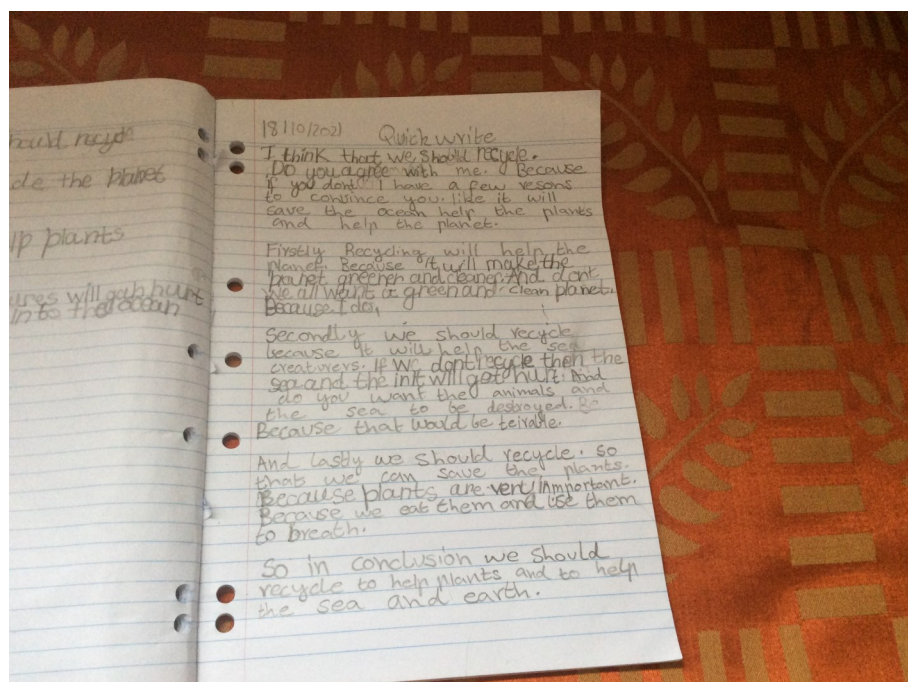 hould recycle
de the planet
lp plants
ures will get hurt
in to the ocean
18/10/2021 Quick write
I think that we should recycle.
Do you agree with me. Because
if you dont I have a few resons
to convince you. like it will
save the ocean help the plants
and help the planet.
Firstly Recycling will help the
planet. Because it will make the
planet greener and cleaner. And dont
we all want a green and clean planet.
Because I do,
Secondly we should recycle
because it will help the sea
creaturers. If we dont recycle then the
sea and the in it will get hurt. And
do you want the animals and
the sea to be destroyed.
Because that would be teirable.
And Lastly we should recycle. So
that we can save the plants.
Because plants are very inmportent.
Because we eat them and use them
to breath.
So in conclusion we should
recycle to help plants and to help
the sea and earth.